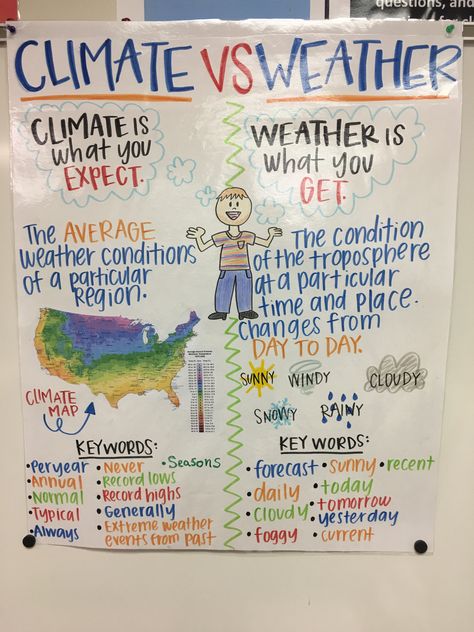 questions, and
CLIMATE VS WEATHER
CLIMATE IS
what you
EXPECT.
The AVERAGE
weather conditions
of a particular
Region.
CLIMATE
MAP
KEYWORDS:
•Per year
•Annual
•Normal
•Typical
•Always
•Never
•Record lows
•Record highs
•Generally
•Extreme weather
events from past
•Seasons
WEATHER IS
what you
GET.
The condition
of the troposphere
at a particular
time and place.
Changes from
DAY TO DAY.
SUNNY WINDY CLOUDY
SNOWY RAINY
KEY WORDS:
•forecast
•daily
•cloudy
•foggy
•sunny
•today
•tomorrow
•yesterday
•current
•recent